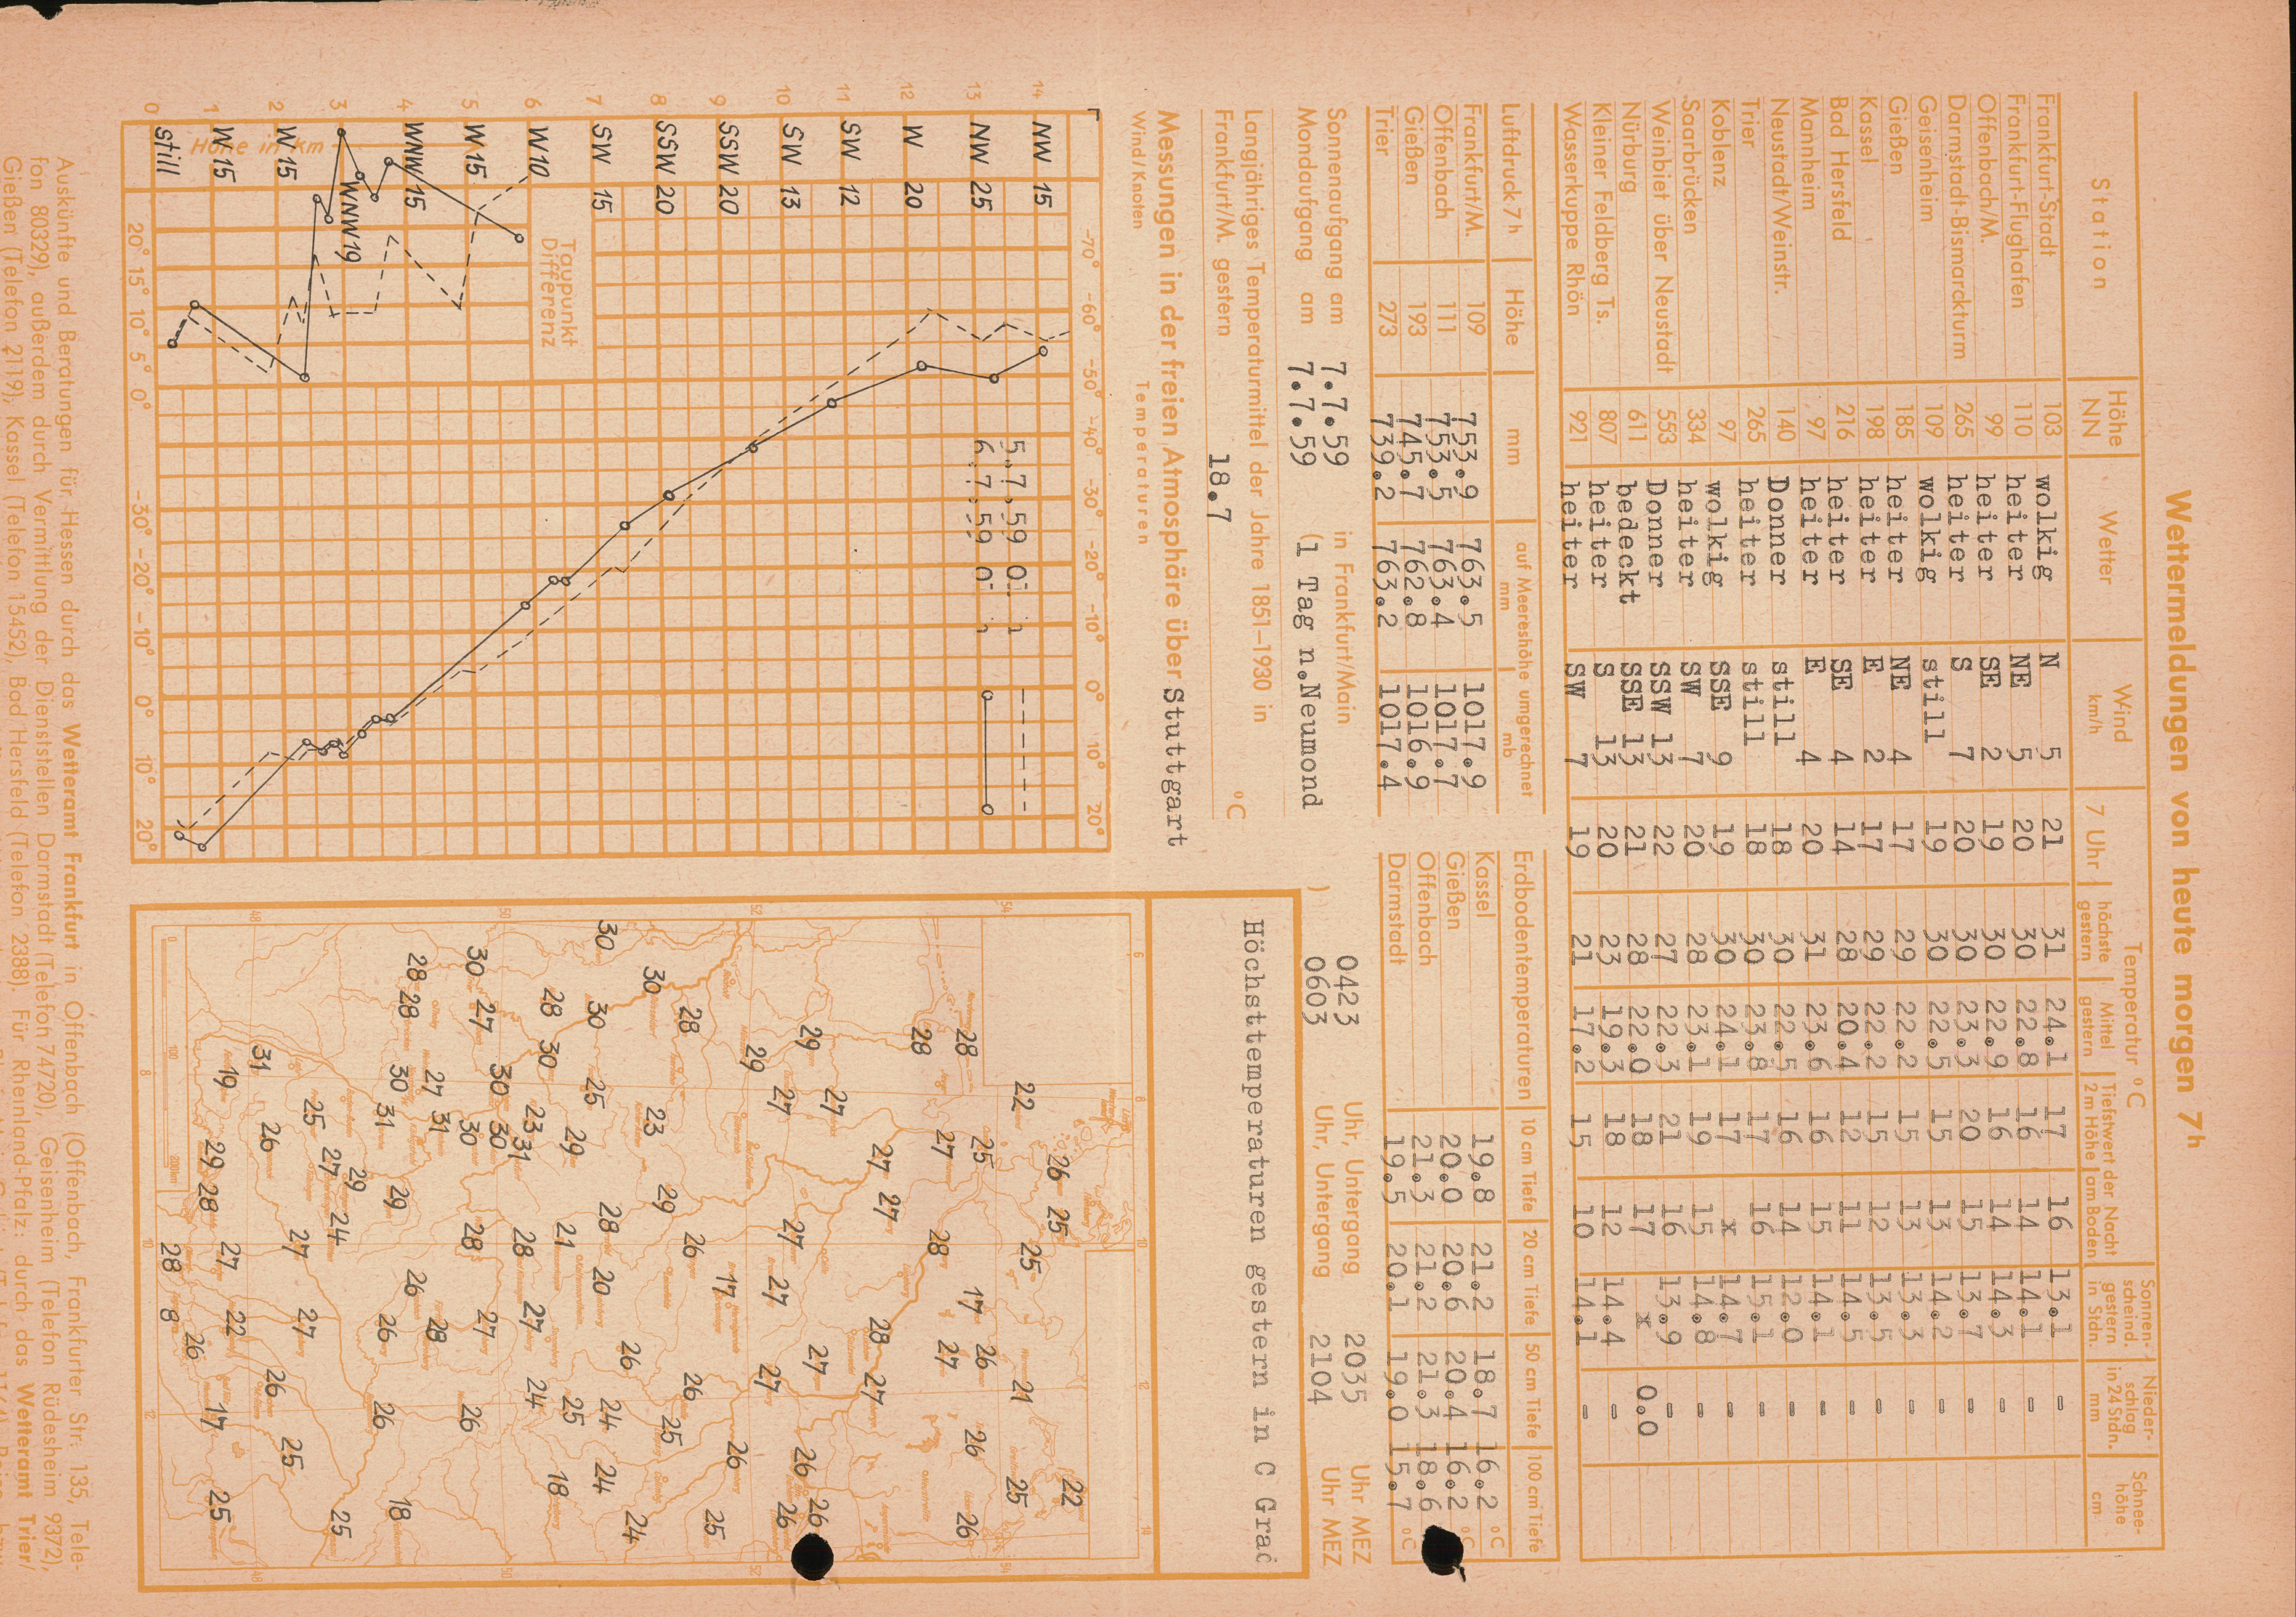 Wettermeldungen von heute morgen 7h
Station Höhe NN Wetter Wind km/h Temperatur °C Sonnen-scheind. gestern in Stdn. Nieder-schlag in 24 Stdn. mm Schnee-höhe cm
7 Uhr höchste gestern Mittel gestern Tiefstwert der Nacht 2m Höhe am Boden
Frankfurt-Stadt 103 wolkig N 5 21 31 24.1 17 16 13.1 -
Frankfurt-Flughafen 110 heiter NE 5 20 30 22.8 16 14 14.1 -
Offenbach/M. 99 heiter SE 2 19 30 22.9 16 14 14.3 -
Darmstadt-Bismarckturm 265 heiter S 7 20 30 23.3 20 15 13.7 -
Geisenheim 109 wolkig still 19 30 22.5 15 13 14.2 -
Gießen 185 heiter NE 4 17 29 22.2 15 13 13.3 -
Kassel 198 heiter E 2 17 29 22.2 15 12 13.5 -
Bad Hersfeld 216 heiter SE 4 14 28 20.4 12 11 14.5 -
Mannheim 97 heiter E 4 20 31 23.6 16 15 14.1 -
Neustadt/Weinstr. 140 Donner still 18 30 22.5 16 14 12.0 -
Trier 265 heiter still 18 30 23.8 17 16 15.1 -
Koblenz 97 wolkig SSE 9 19 30 24.1 17 x 14.7 -
Saarbrücken 334 heiter SW 7 20 28 23.1 19 15 14.8 -
Weinbiet über Neustadt 553 Donner SSW 13 22 27 22.3 21 16 13.9 -
Nürburg 611 bedeckt SSE 13 21 28 22.0 18 17 x 0.0
Kleiner Feldberg Ts. 807 heiter S 13 20 23 19.3 18 12 14.4 -
Wasserkuppe Rhön 921 heiter SW 7 19 21 17.2 15 10 14.1 -
Luftdruck 7h Höhe mm auf Meereshöhe umgerechnet mm mb
Frankfurt/M. 109 753.9 763.5 1017.9
Offenbach 111 753.5 763.4 1017.7
Gießen 193 745.7 762.8 1016.9
Trier 273 739.2 763.2 1017.4
Erdbodentemperaturen 10 cm Tiefe 20 cm Tiefe 50 cm Tiefe 100 cm Tiefe
Kassel 19.8 21.2 18.7 16.2 °C
Gießen 20.0 20.6 20.4 16.2 °C
Offenbach 21.3 21.2 21.3 18.6
Darmstadt 19.5 20.1 19.0 15.7 °C
Sonnenaufgang am 7.7.59 in Frankfurt/Main 0423 Uhr, Untergang 2035 Uhr MEZ
Mondaufgang am 7.7.59 (1 Tag n.Neumond ) 0603 Uhr, Untergang 2104 Uhr MEZ
Langjähriges Temperaturmittel der Jahre 1851–1930 in
Frankfurt/M. gestern 18.7 °C
Messungen in der freien Atmosphäre über Stuttgart
Wind/Knoten Temperaturen
-70° -60° -50° -40° -30° -20° -10° 0° 10° 20°
14 NW 15
5.7.59 0
13 NW 25
6.7.59 0
12 W 20
11 SW 12
10 SW 13
9 SSW 20
8 SSW 20
7 SW 15
6 W 10
Taupunkt Differenz
5 W 15
4 WNW 15
3 WNW 19
2 W 15
1 W 15
0 still
Höhe in km
20° 15° 10° 5° 0° -30° -20° -10° 0° 10° 20°
Höchsttemperaturen gestern in C Grad
6 8 10 12 14
54 52 50 48
22
26 25 22
22 25 21 25
28 25 17 26 26 26
28 27 28 27
27 27 28 27
29 27 27 27 26 26
29 27 27 27 26
28 26 17 26 26 25
30 23 29 26 25
30 30 25 28 20 26 24 24 24
28 30 29 21 25 18
23 31 28 27 24
30 27 30 30 30 28 27 26
28 28 27 31 26 28
30 31 29 26 26 18
29 27 24 25
25 27 27
31 26 26 25
19 29 28 27 22 17 25
28 8 26
Auskünfte und Beratungen für Hessen durch das Wetteramt Frankfurt in Offenbach (Offenbach, Frankfurter Str. 135, Tele-
fon 80329), außerdem durch Vermittlung der Dienststellen Darmstadt (Telefon 74720), Geisenheim (Telefon Rüdesheim 9372),
Gießen (Telefon 2119), Kassel (Telefon 15452), Bad Hersfeld (Telefon 2388). Für Rheinland-Pfalz: durch das Wetteramt Trier/